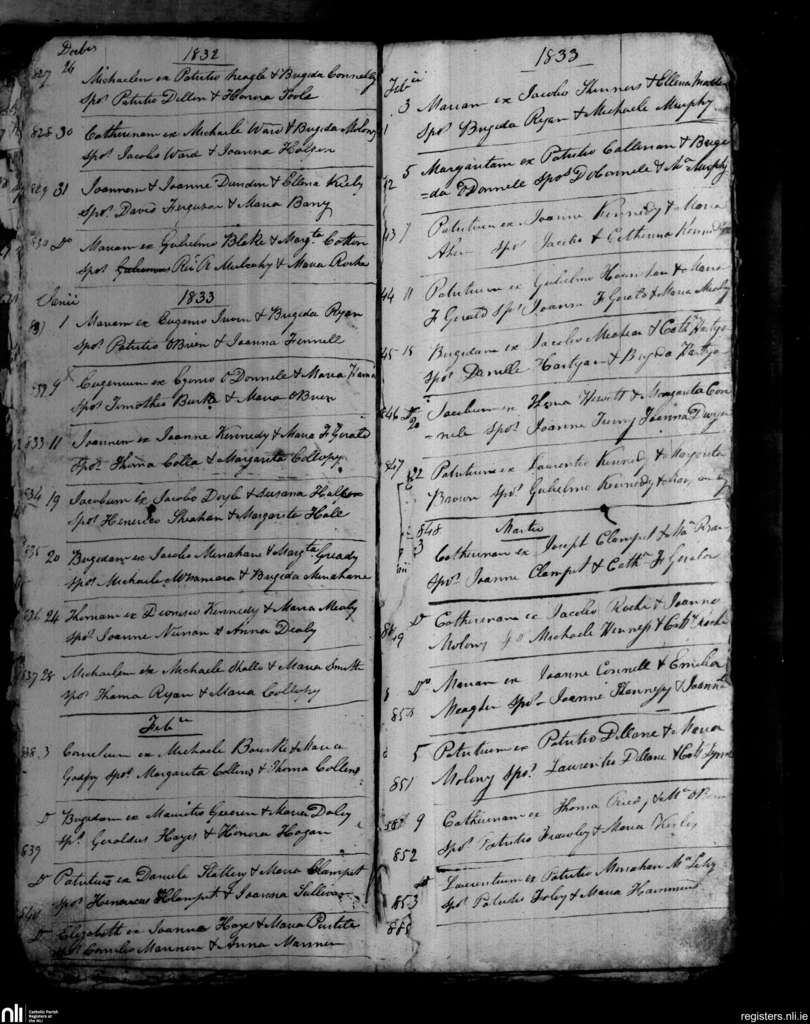 Decbris
1832
827 26 Michaelem ex Patritio Neagle & Brigida Connelly
Spos Patritio Dillon & Honora Toole
828 30 Catherinam ex Michaele Ward & Brigida Molony
Spos Jacobo Ward & Joanna Halpen
829 31 Joannem & Joanne Dundon & Ellena Kiely
Spos David Ferguson & Maria Barry
830 Do Mariam ex Gulielmo Blake & Margta Cotton
Spos Rid Mulcahy & Maria Roche
Janii 1833
831 1 Mariam ex Eugenio Irwin & Brigida Ryan
Spos Patritio OBrien & Joanna Fennell
9 Eugenium ex Eugenio O Donnele & Maria
Spos Timotheo Burke & Maria OBrien
833 11 Joannem ex Joanne Kennedy & Maria F Gerald
Spos Thoma Colla & Margarita Collopy
834 19 Jacobum ex Jacobo Doyle & Susana Hallon
Spos Henerico Sheahan & Margarita Hall
835 20 Brigidam ex Jacobo Menahane & Margta Gready
Spos Michaele McNamara & Brigida Menahane
836 24 Thomam ex Dionesio Kennedy & Maria Mealy
Spos Joanne Nunan & Anna Dealy
837 28 Michaelem ex Michaele Shallo & Maria Smith
Spos Thoma Ryan & Maria Collopy
Febrii
838 3 Cornelium ex Michaele Bourke & Maria
Godfry Spos Margarita Collins & Thoma Collins
Do Brigidam ex Mauritio Gueren & Maria Daly
839 Spos Geraldus Hayes & Honora Hogan
Do Patritium ex Daniele Slattery & Maria Clampet
840 Spos Henericus Clampet & Joanna Sullivan
Do Elizabeth ex Joanna Hayes & Maria
Spos Cornelio Mannen & Anna Mannen
1833
Febrii
3 Mariam ex Jacobo Skinners & Ellena
Spos Brigida Ryan & Michaele Murphy
42 5 Margaritam ex Patritio Callinan & Brigi
=da O Donnele Spos D OConnele & Ma Murphy
43 7 Patritium ex Joanne Kennedy & Maria
Ahern Spos Jacobo & Catherina Kennedy
44 11 Patritium ex Gulielmo & Maria
F Gerald Spos Joanna F Gerald & Maria Mealy
45 15 Brigidam ex Jacobo Meahea & Cath Hartyan
Spos Daniele Hartyan & Brigida Hartyan
846 Do 20 Jacobum ex Hewitt & Margarita Con
=nele Spos Joanne Terry Joanna Dwyer
847 22 Patritium ex Laurentio Kennedy & Margarita
Brown Spos Gulielmo Kennedy &
848 Martii
3 Catherinam ex Joseph Clampet & Ma
Spos Joanne Clampet & Cath F Gerald
849 Do Catherinam ex Jacobo Roche & Joanna
Molony Spos Michaele Henness & Cath Roche
Do Mariam ex Joanne Connell & Emelia
850 Meagher Spos Joanne Hennessy & Joanna
5 Patritium ex Patritio Dillane & Maria
851 Molony Spos Laurentio Dillane & Cath Lynch
9 Catherinam ex Thoma & Ma
852 Spos Patritio Frawley & Maria Kiely
Do Laurentium ex Patritio Menahan Ma
853 Spos Patritio Foley & Maria
nli
Catholic Parish
Registers at
the NLI
registers.nli.ie